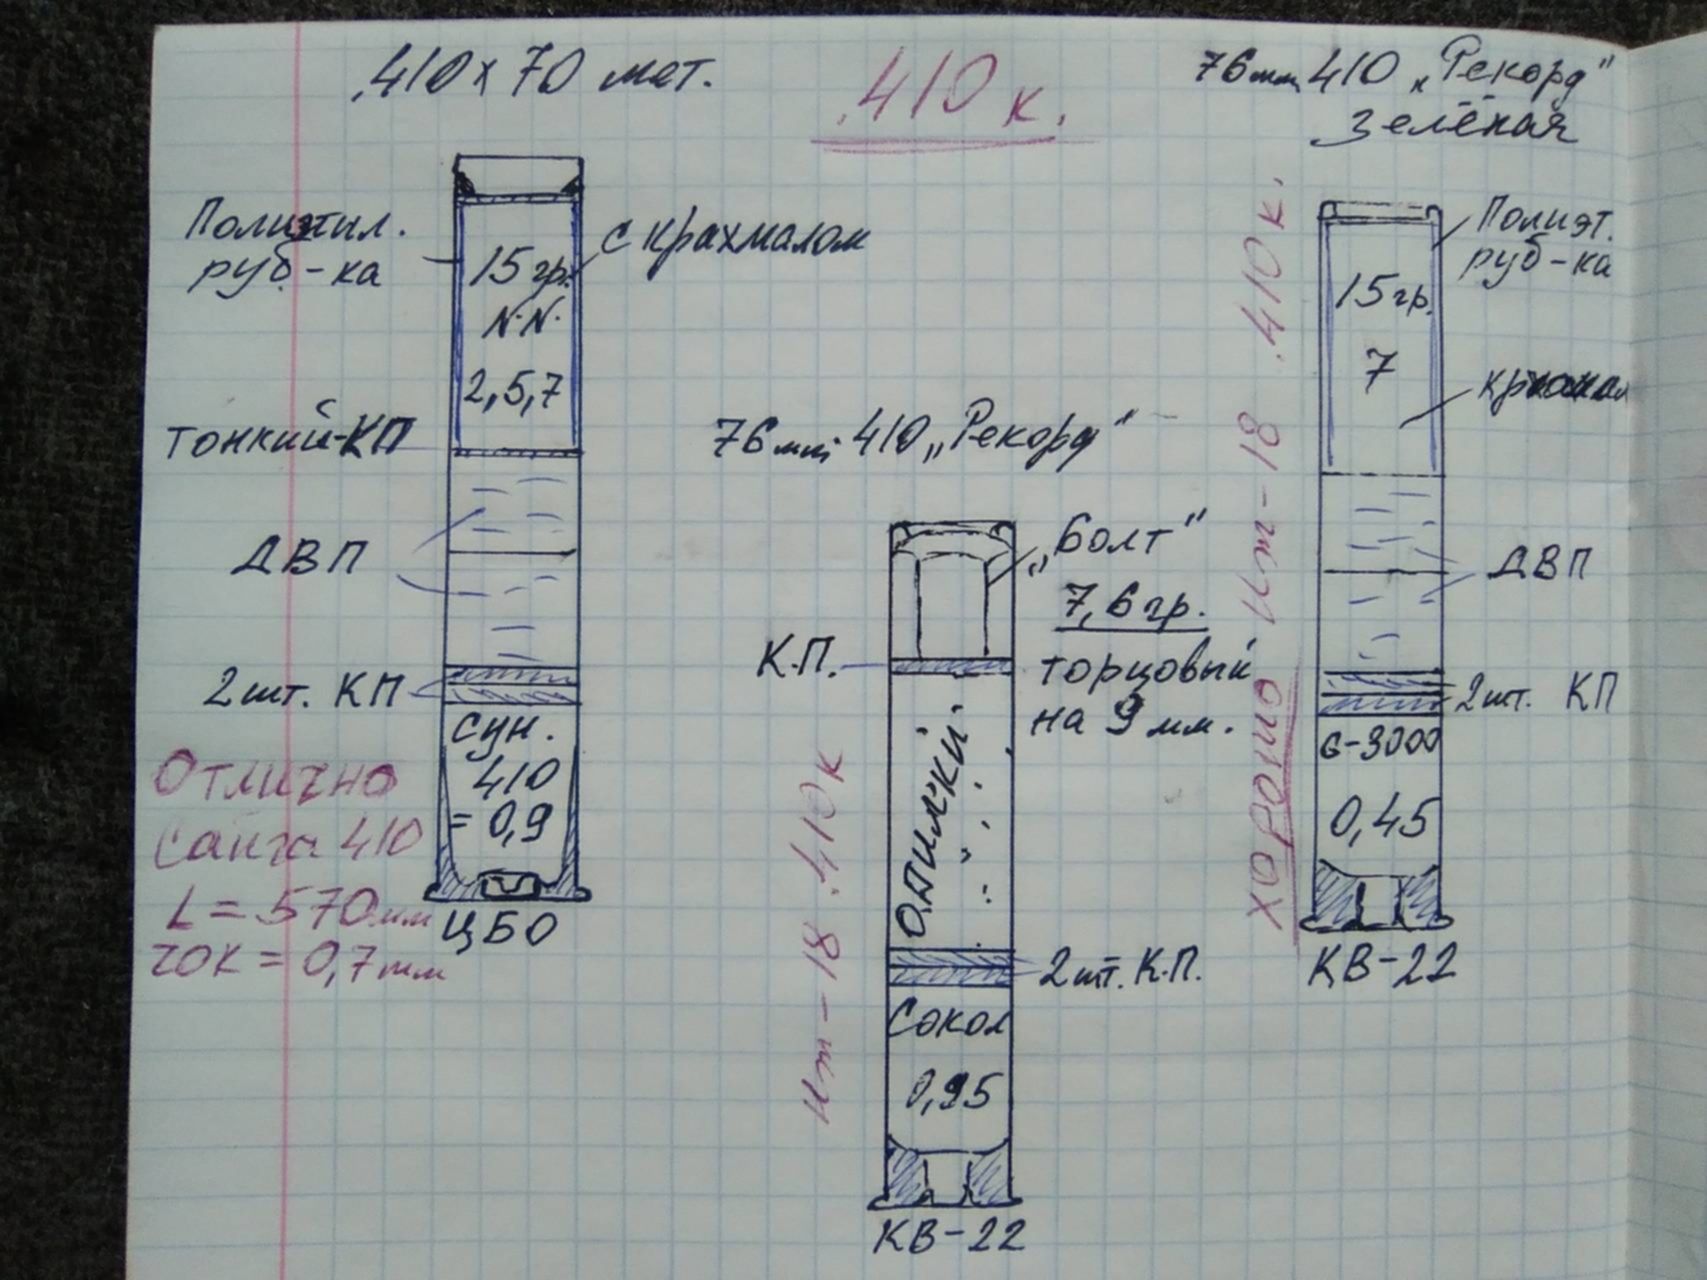 .410 x 70 мет.
.410 к.
76мм 410 „Рекорд"
зелёная
Полиэтил.
руб-ка
с крахмалом
15 гр.
N.N.
2,5,7
тонкий-КП
ДВП
2шт. КП
сун.
410
= 0,9
ЦБО
Отлично
Сайга 410
L = 570мм
чок = 0,7мм
76мм 410 „Рекорд"
„Болт"
7,6 гр.
торцовый
на 9 мм.
К.П.
опилки
2шт. К.П.
Сокол
0,95
КВ-22
иж-18 .410к
Полиэт.
руб-ка
15гр.
7
крахмал
ДВП
2шт. КП
G-3000
0,45
КВ-22
хорошо иж-18 .410к.